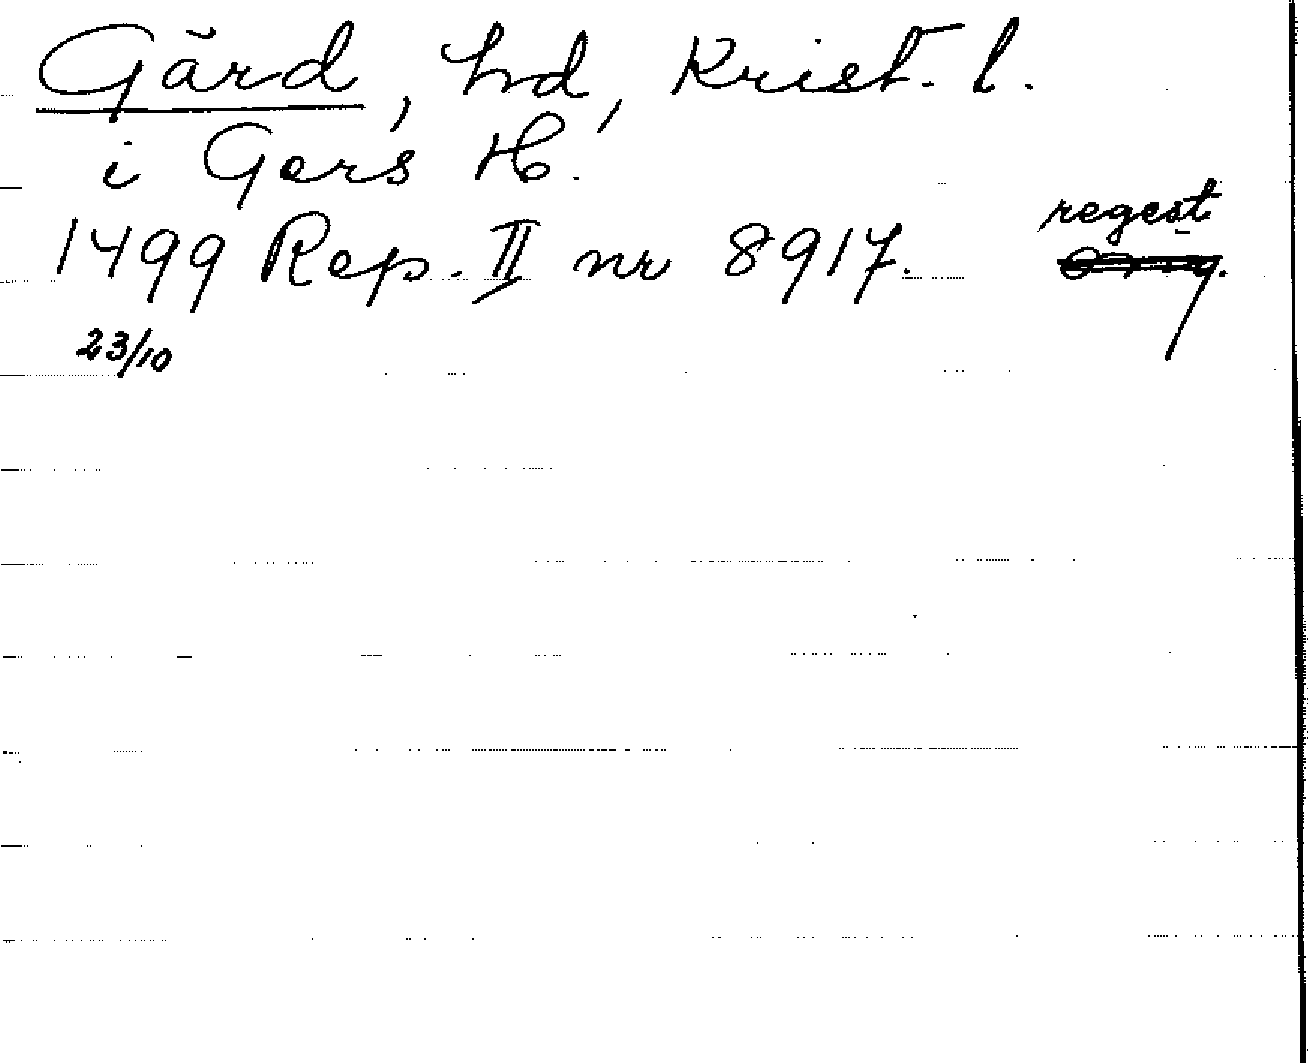 Gärd, hd, Krist. l.
i Gers H.
regest
1499 Rep. II nr 8917.
23/10